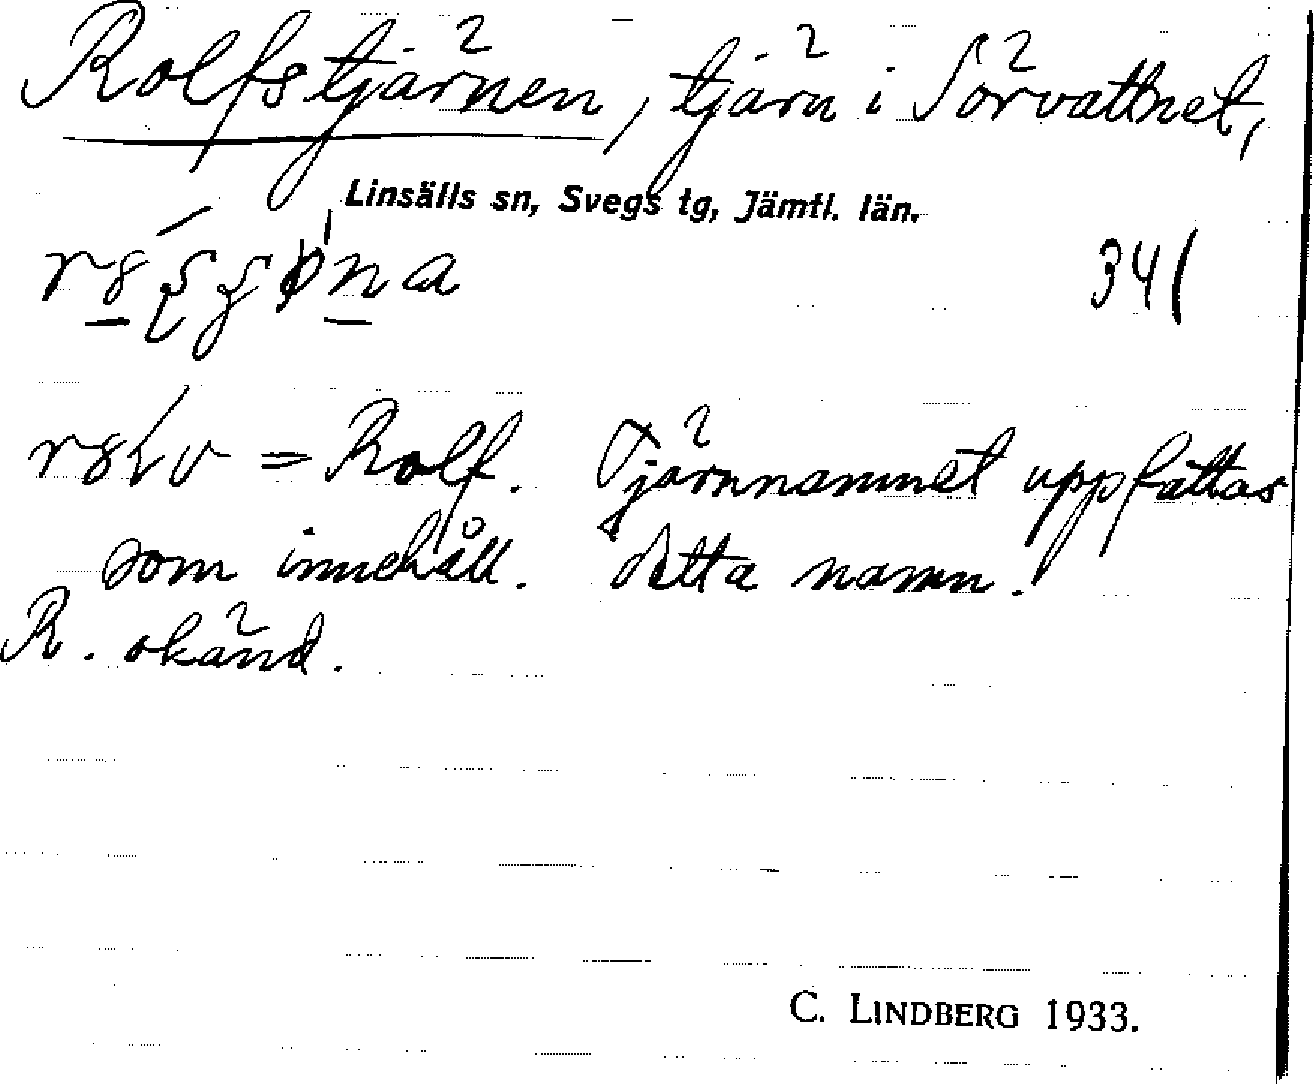 Rolfstjärnen, tjärn i Sörvattnet,
Linsälls sn, Svegs tg, Jämtl. län.
341
= Rolf. Tjärnnamnet uppfattas
som innehåll. detta namn.
R. okänd.
C. LINDBERG 1933.